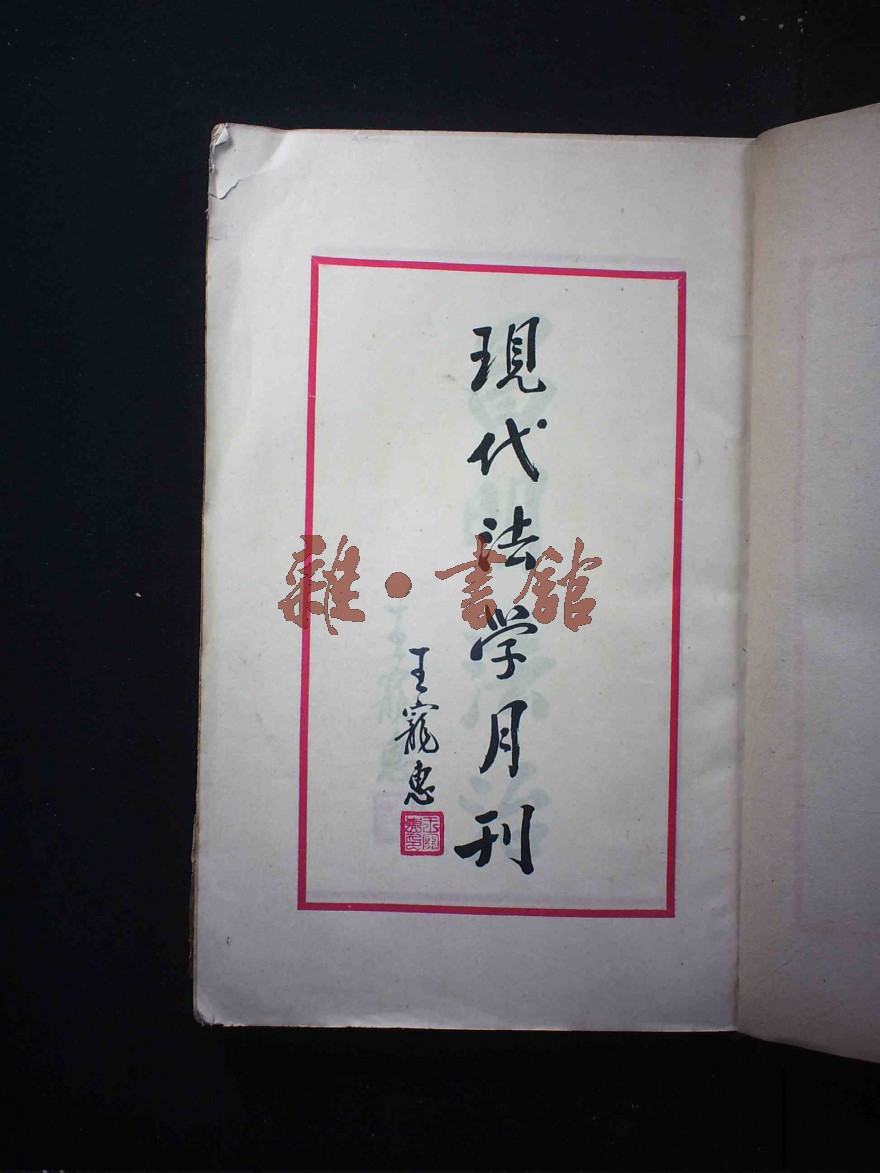 現代法学月刊
王寵惠
雜·書館